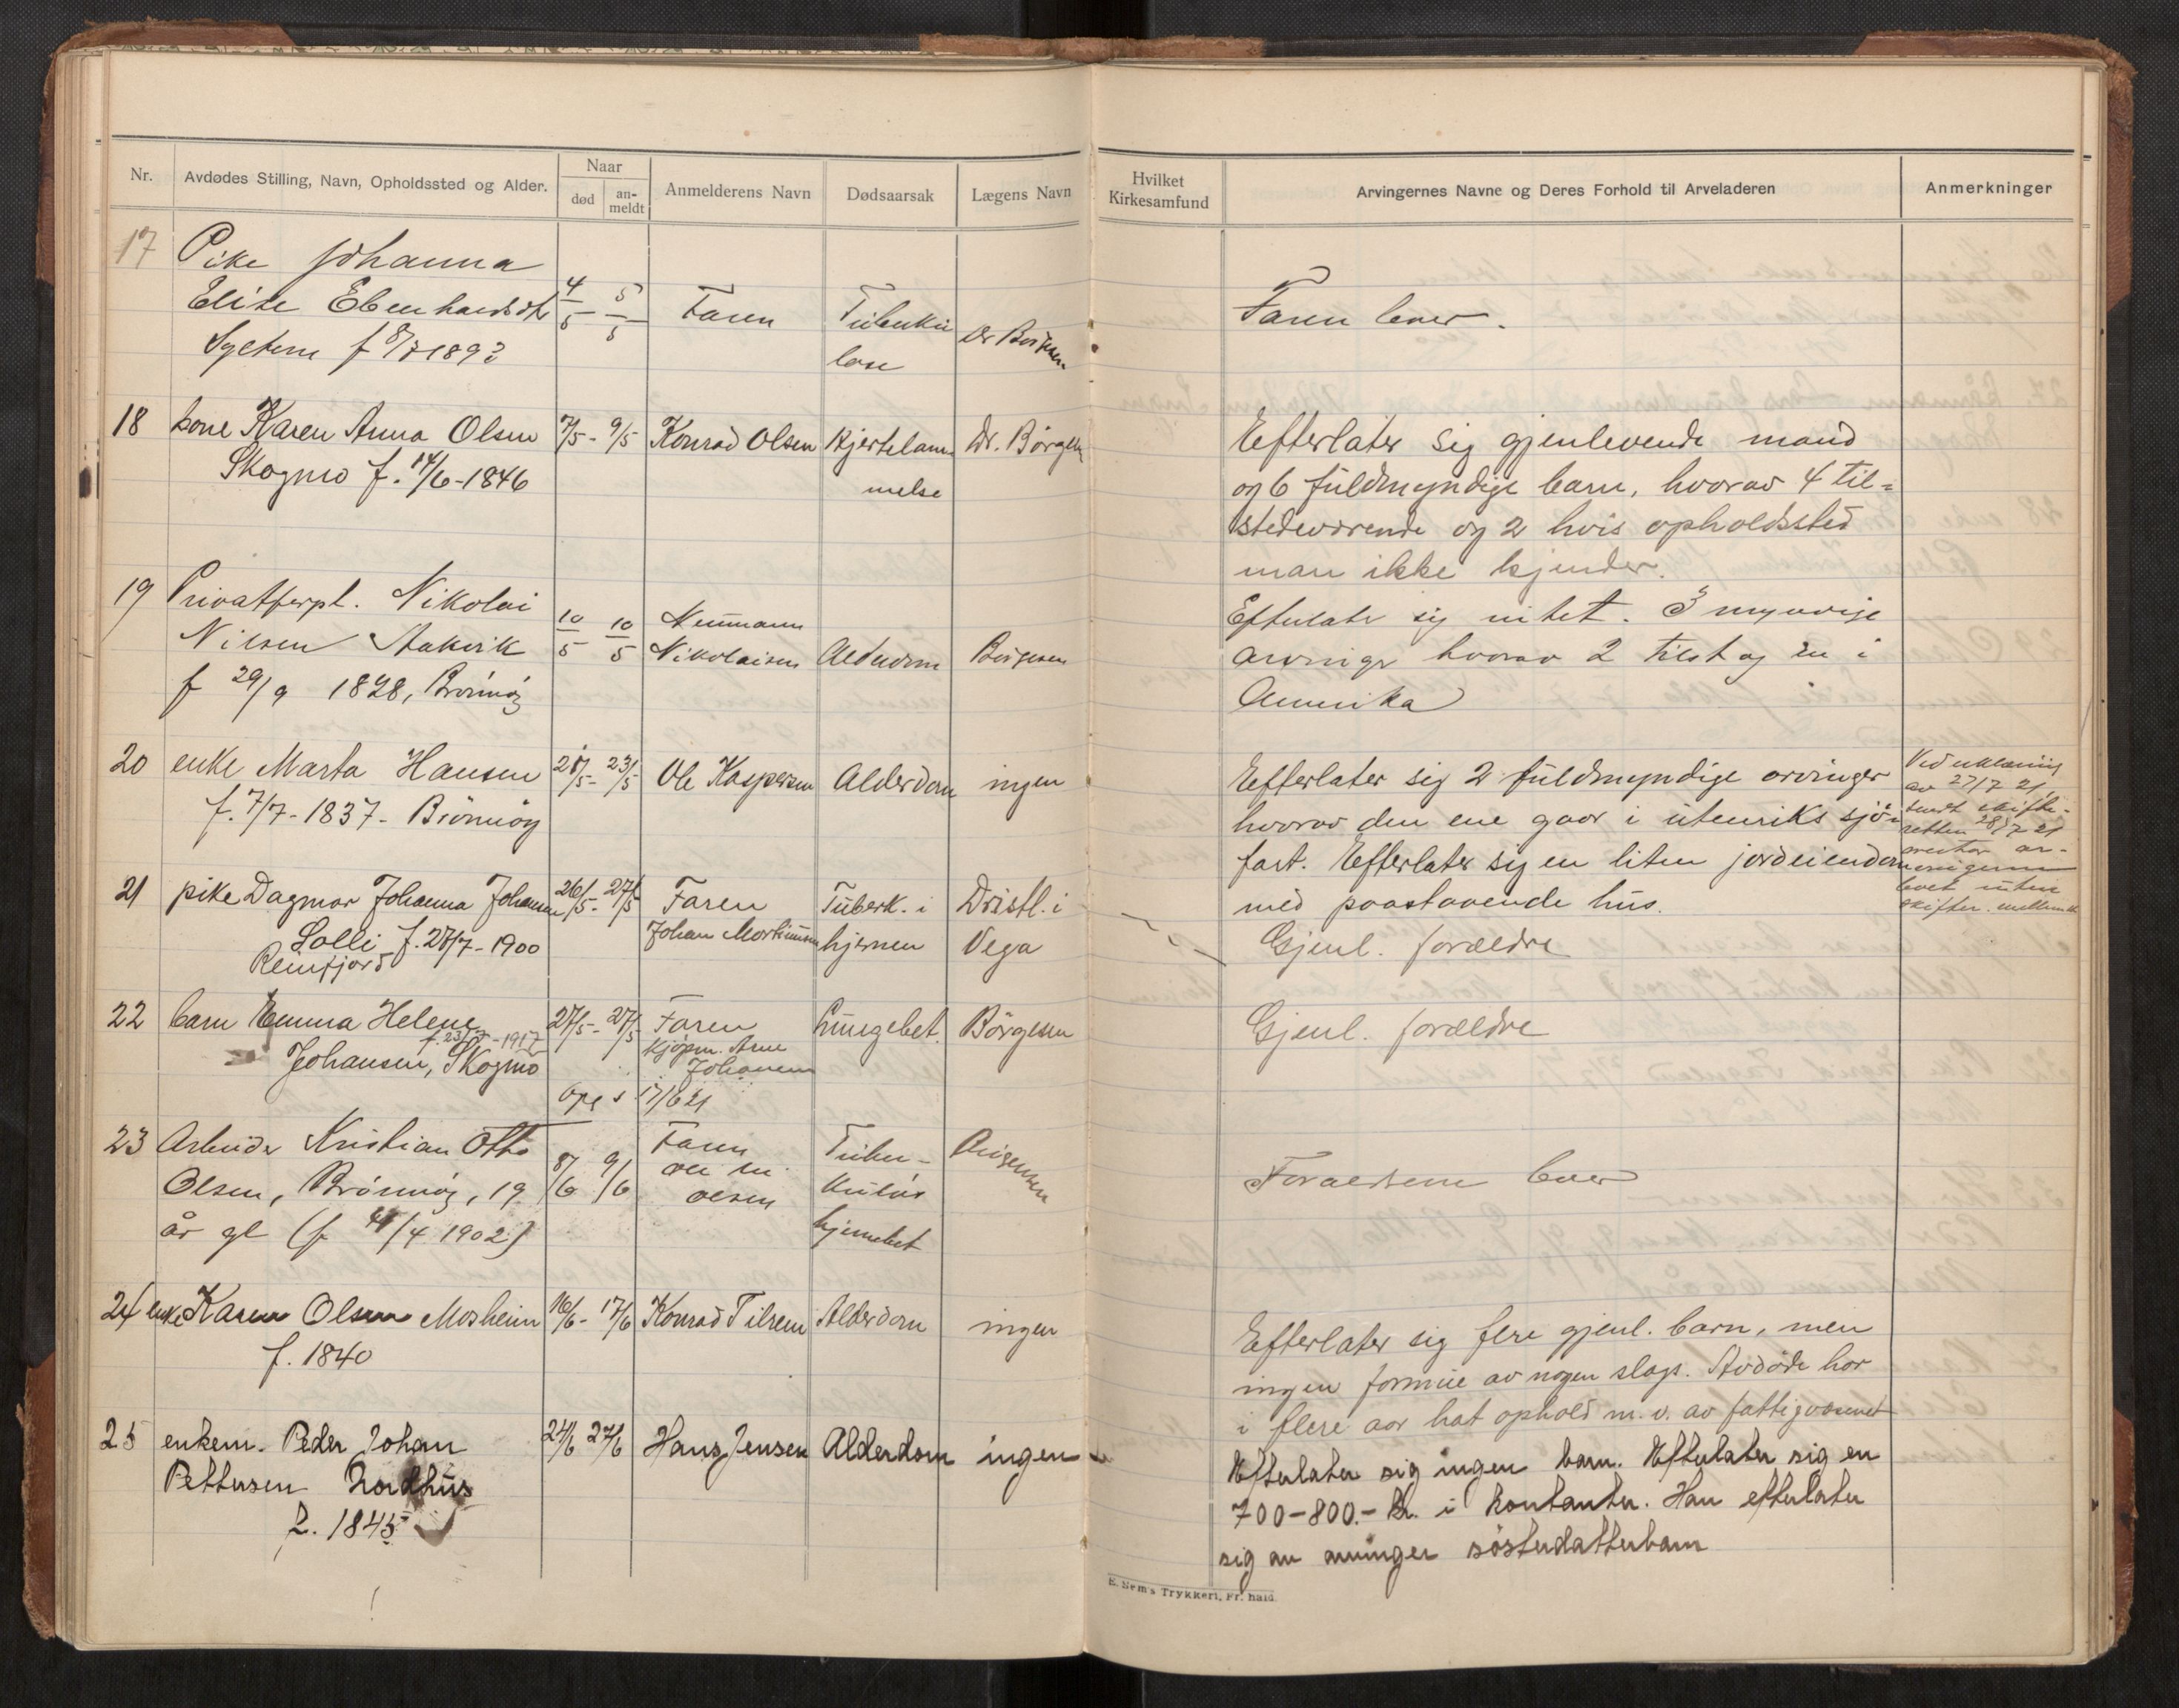 Nr.
Avdødes Stilling, Navn, Opholdssted og Alder.
Naar
død
an-
meldt
Anmelderens Navn
Dødsaarsak
Lægens Navn
Hvilket
Kirkesamfund
Arvingernes Navne og Deres Forhold til Arveladeren
Anmerkninger
17 Pike Johanna
Elise Ebenhardsdtr
f 8/7 189
4/5 5/5
Faren
Tuberku
lose
Dr
Faren lever.
18 kone Karen Anna Olsen
Skogmo f. 14/6-1846
7/5 - 9/5
Konrad Olsen
Hjertelam
melse
Dr. Börgesen
Efterlater sig gjenlevende mand
og 6 fuldmyndige barn, hvorav 4 til=
stedeværende og 2 hvis opholdssted
man ikke kjender.
19 Privatforpl. Nikolai
Nilsen Aakvik
f 29/9 1828, Brönnöy
10/5 10/5
Neumann
Nikolaisen
Alderdom
Börgesen
Efterlate sig intet. 3 myndige
arvinger hvorav 2 tilst og en i
Amerika
20 enke Marta Hansen
f. 7/7-1837- Brönnöy
21/5 - 23/5
Ole Kaspersen
Alderdom
ingen
Efterlater sig 2 fuldmyndige arvinger
hvorav den ene gaar i utenriks sjö-
fart. Efterlater sig en liten jordeiendom
med paastaaende hus.
Ved erklæring
av 27/7 21,
sendt skifte-
retten 28/7 21
overtar ar-
vingerne
boet uten
skifte
21 pike Dagmar Johanna Johansen
Solli f. 27/7-1900
Reinfjord
26/5 - 27/5
Faren
Johan Mortinsen
Tuberk. i
hjernen
Distl. i
Vega
Gjenl. forældre
22 barn Emma Helene
f. 23/7 - 1917
Johansen, Skogmo
27/5 - 27/5
Faren
Kjöpm. Arne
Johansen
Lungebet.
Börgesen
Gjenl. forældre
17/6 21
23 Arbeider Kristian Otto
Olsen, Brönnöy, 19
år gl (f /4 1902)
8/6 9/6
Faren
Olsen
Tuber-
kuløs
hjernebet
Börgesen
Forældrene lever
24 enke Karen Olsen Mosheim
f. 1840
16/6 - 17/6
Konrad Tilrem
Alderdom
ingen
Efterlater sig flere gjenl. barn, men
ingen formue av nogen slags. Avdöde har
i flere aar hat ophold m.v. av fattigvæsenet
25 enkem. Peder Johan
Pettersen Nordhus
f. 1845
24/6 27/6
Hans Jensen
Alderdom
ingen
Efterlater sig ingen barn. Efterlater sig en
700-800.- kr. i kontanter. Han efterlater
sig av arvinger sösterdatterbarn
E. Sem's Trykkeri, Fr.hald